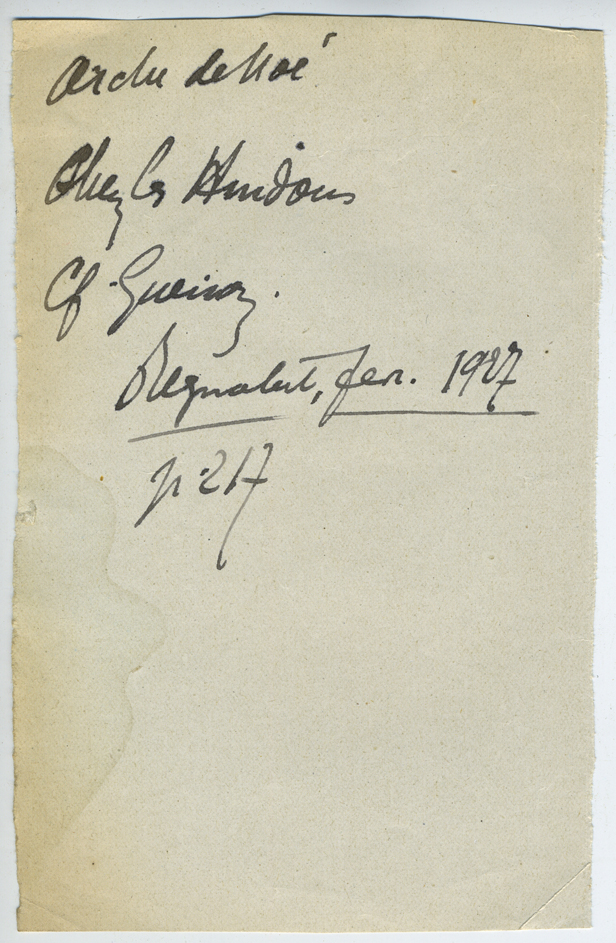 Arche de Noé
Chez les Hindous
Cf. Guénon.
Regnabit, fev. 1927
p. 217